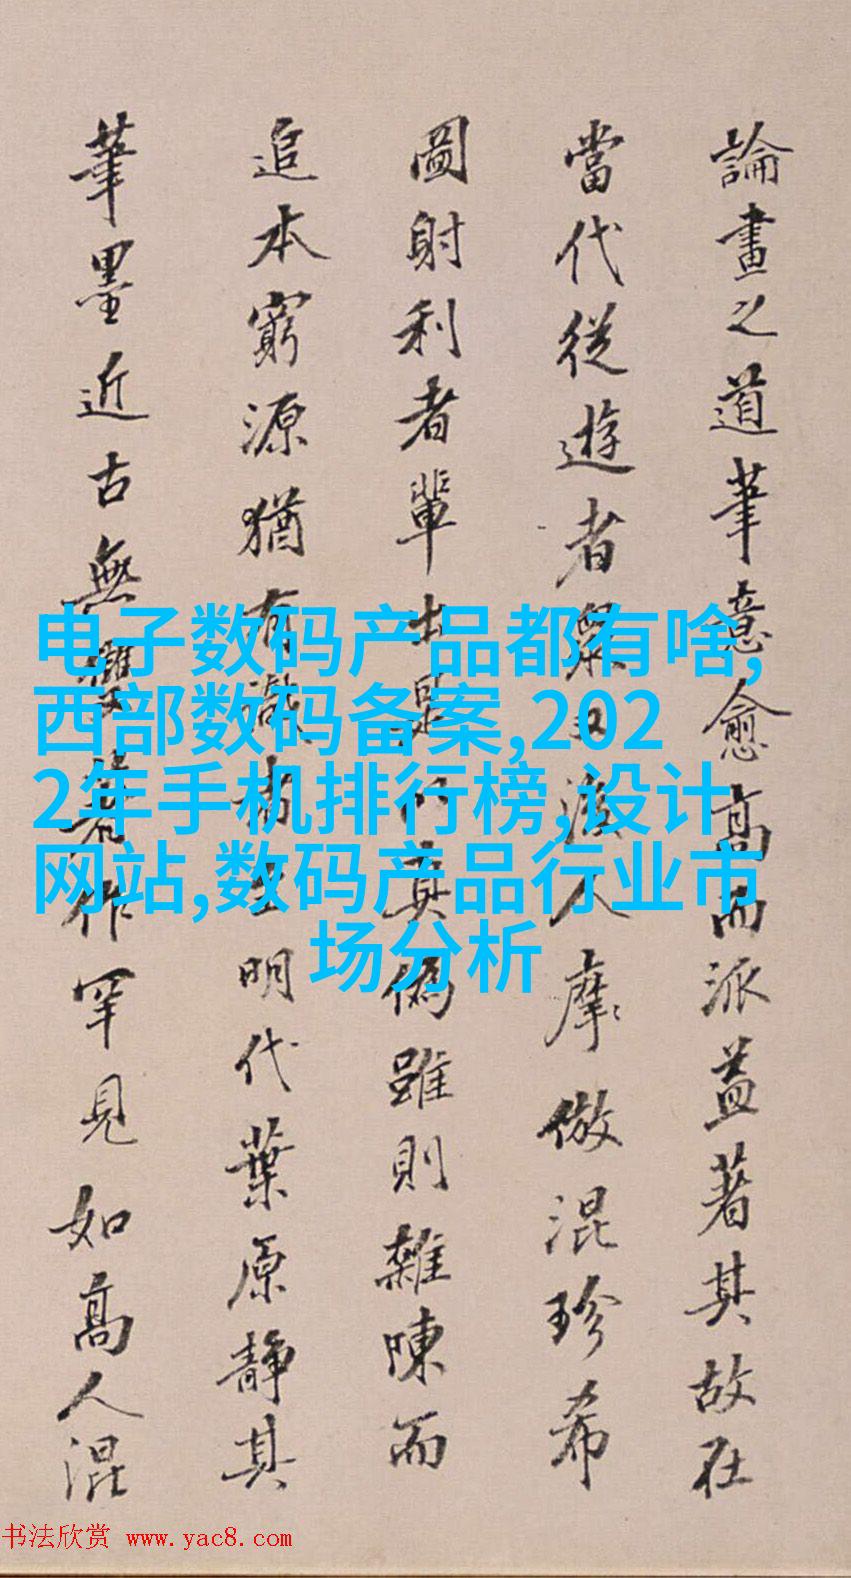 論畫之道筆意愈高而派益著其故在
當代從遊者衆又人摩倣混珍希
圖射利者輩出是以真偽雖則雜陳而
追本窮源猶有識者明代葉原靜其
筆墨近古無雙著作罕見如高人混
电子数码产品都有啥,
西部数码备案,202
2年手机排行榜,设计
网站,数码产品行业市
场分析
书法欣赏 www.yac8.com